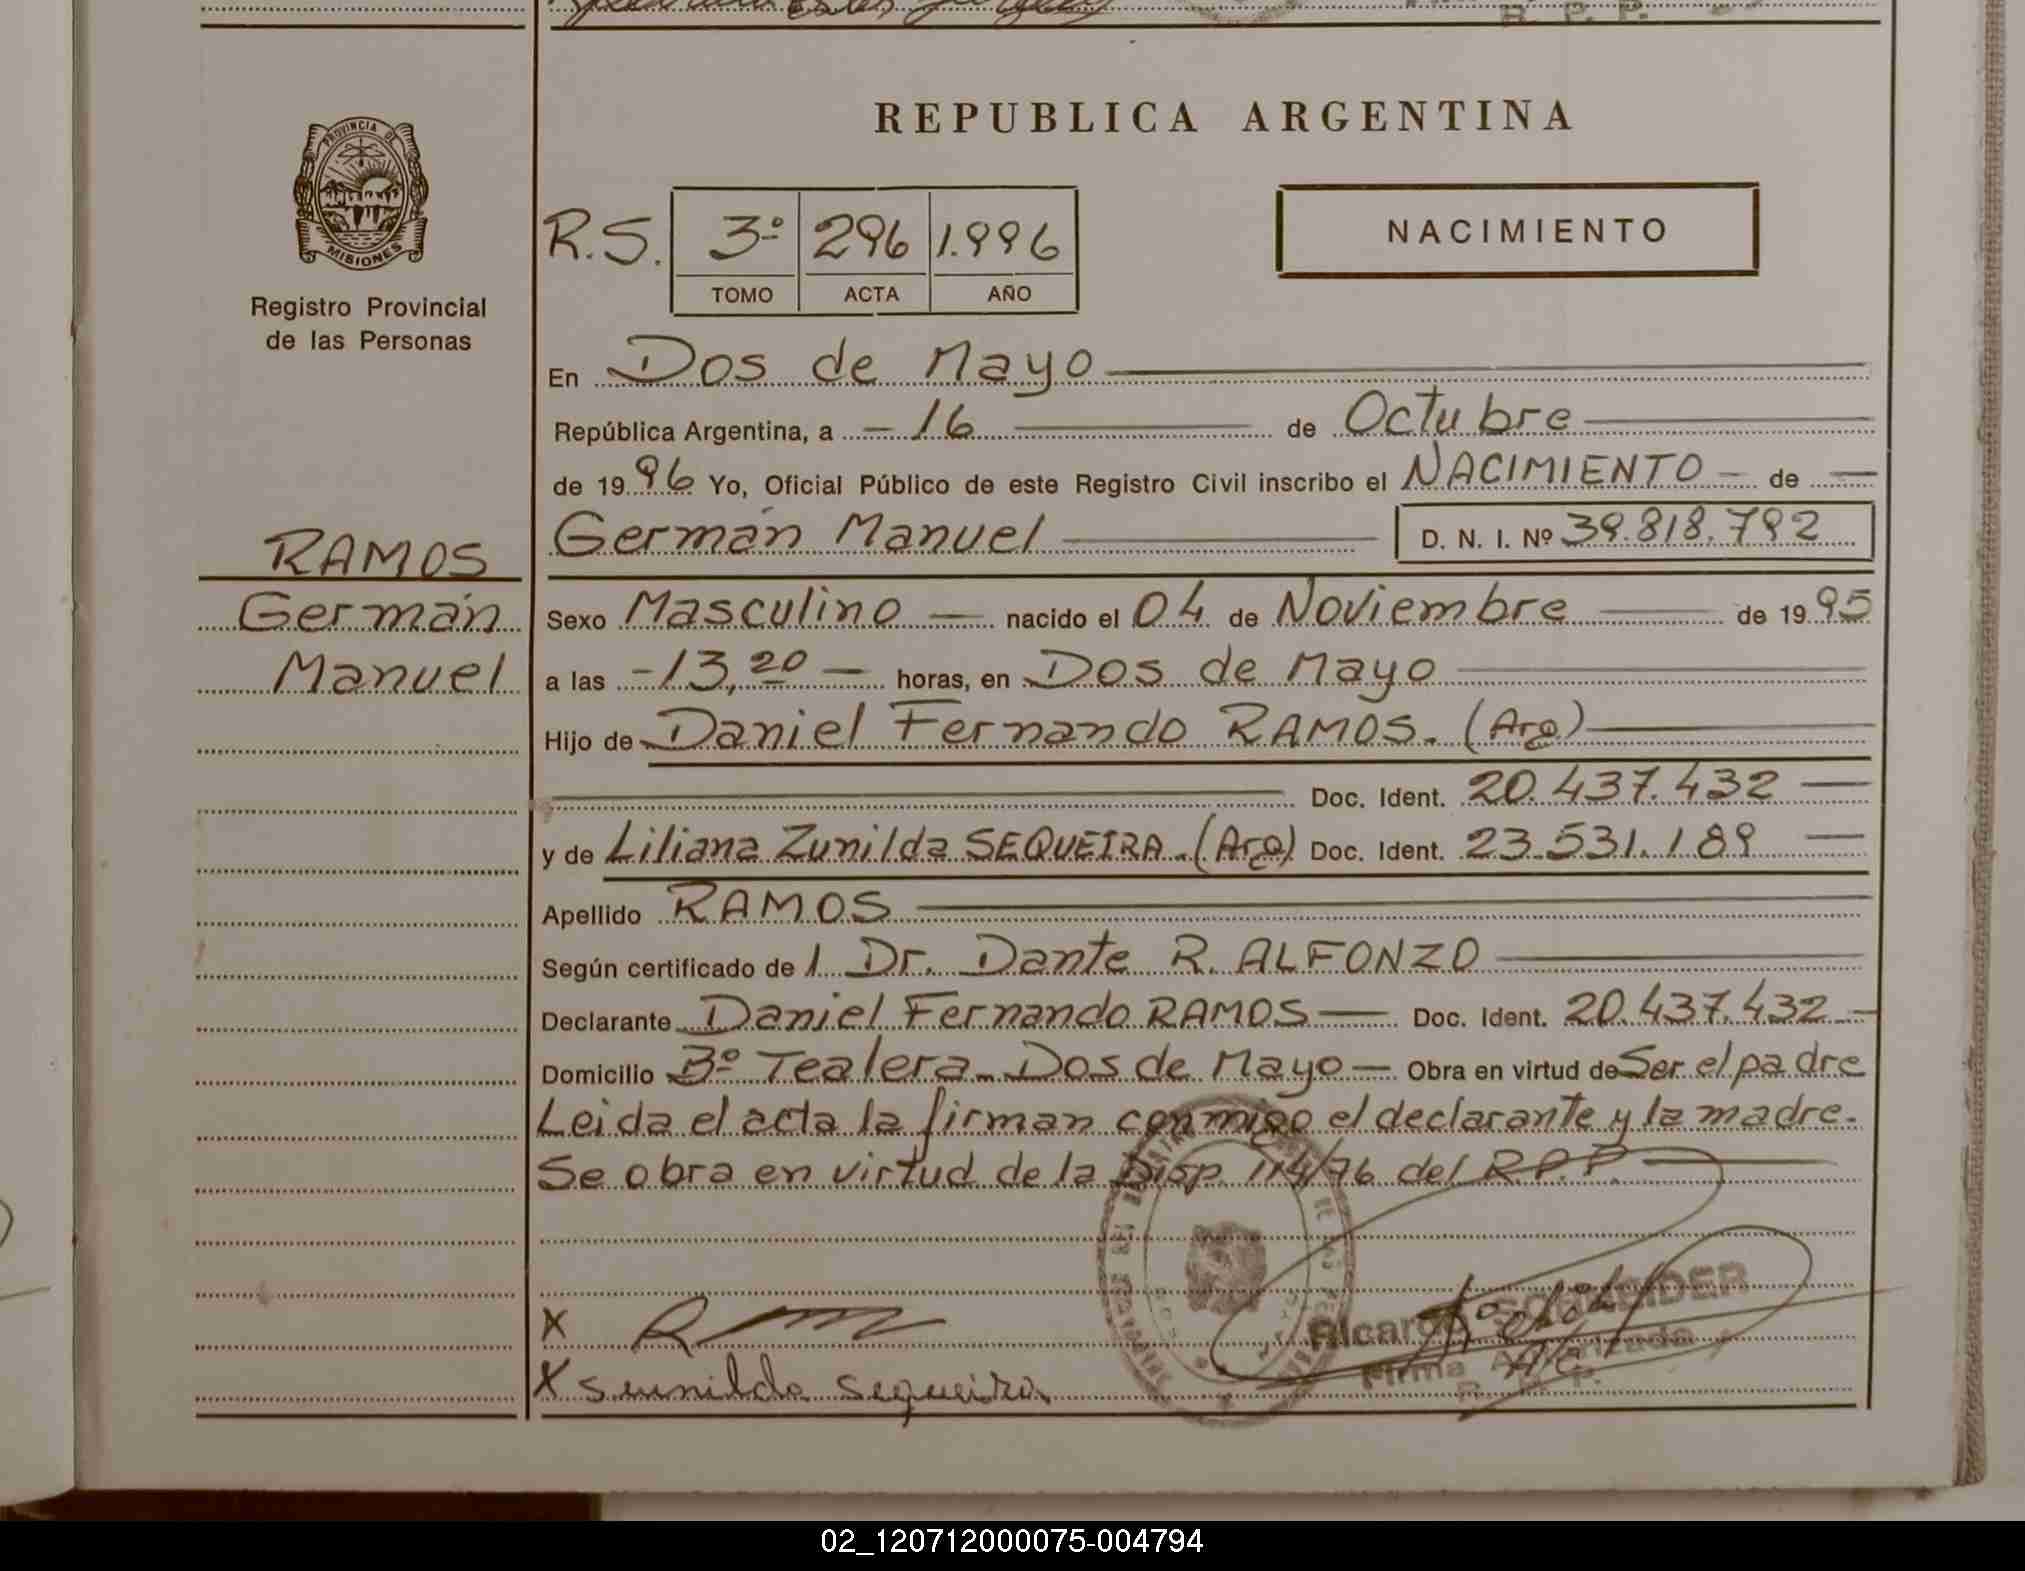 R. P. P.
REPUBLICA ARGENTINA
PROVINCIA DE MISIONES
Registro Provincial
de las Personas
R.S. 3º 296 1.996
TOMO ACTA AÑO
NACIMIENTO
En Dos de Mayo
República Argentina, a - 16 de Octubre
de 1996 Yo, Oficial Público de este Registro Civil inscribo el NACIMIENTO - de
Germán Manuel D. N. I. Nº 39.818.792
RAMOS
Germán
Manuel
Sexo Masculino — nacido el 04 de Noviembre de 1995
a las -13,20 — horas, en Dos de Mayo
Hijo de Daniel Fernando RAMOS. (Arg)
Doc. Ident. 20.437.432
y de Liliana Zunilda SEQUEIRA. (Arg) Doc. Ident. 23.531.189
Apellido RAMOS
Según certificado de 1 Dr. Dante R. ALFONZO
Declarante Daniel Fernando RAMOS — Doc. Ident. 20.437.432 -
Domicilio Bº Tealera - Dos de Mayo — Obra en virtud de Ser el padre
Leida el acta la firman conmigo el declarante y la madre.
Se obra en virtud de la Disp. 114/96 del R.P.P.
X
Ricardo SCHNEIDER
Firma Autorizada
R. P. P.
X sunilda sequeira
02_120712000075-004794